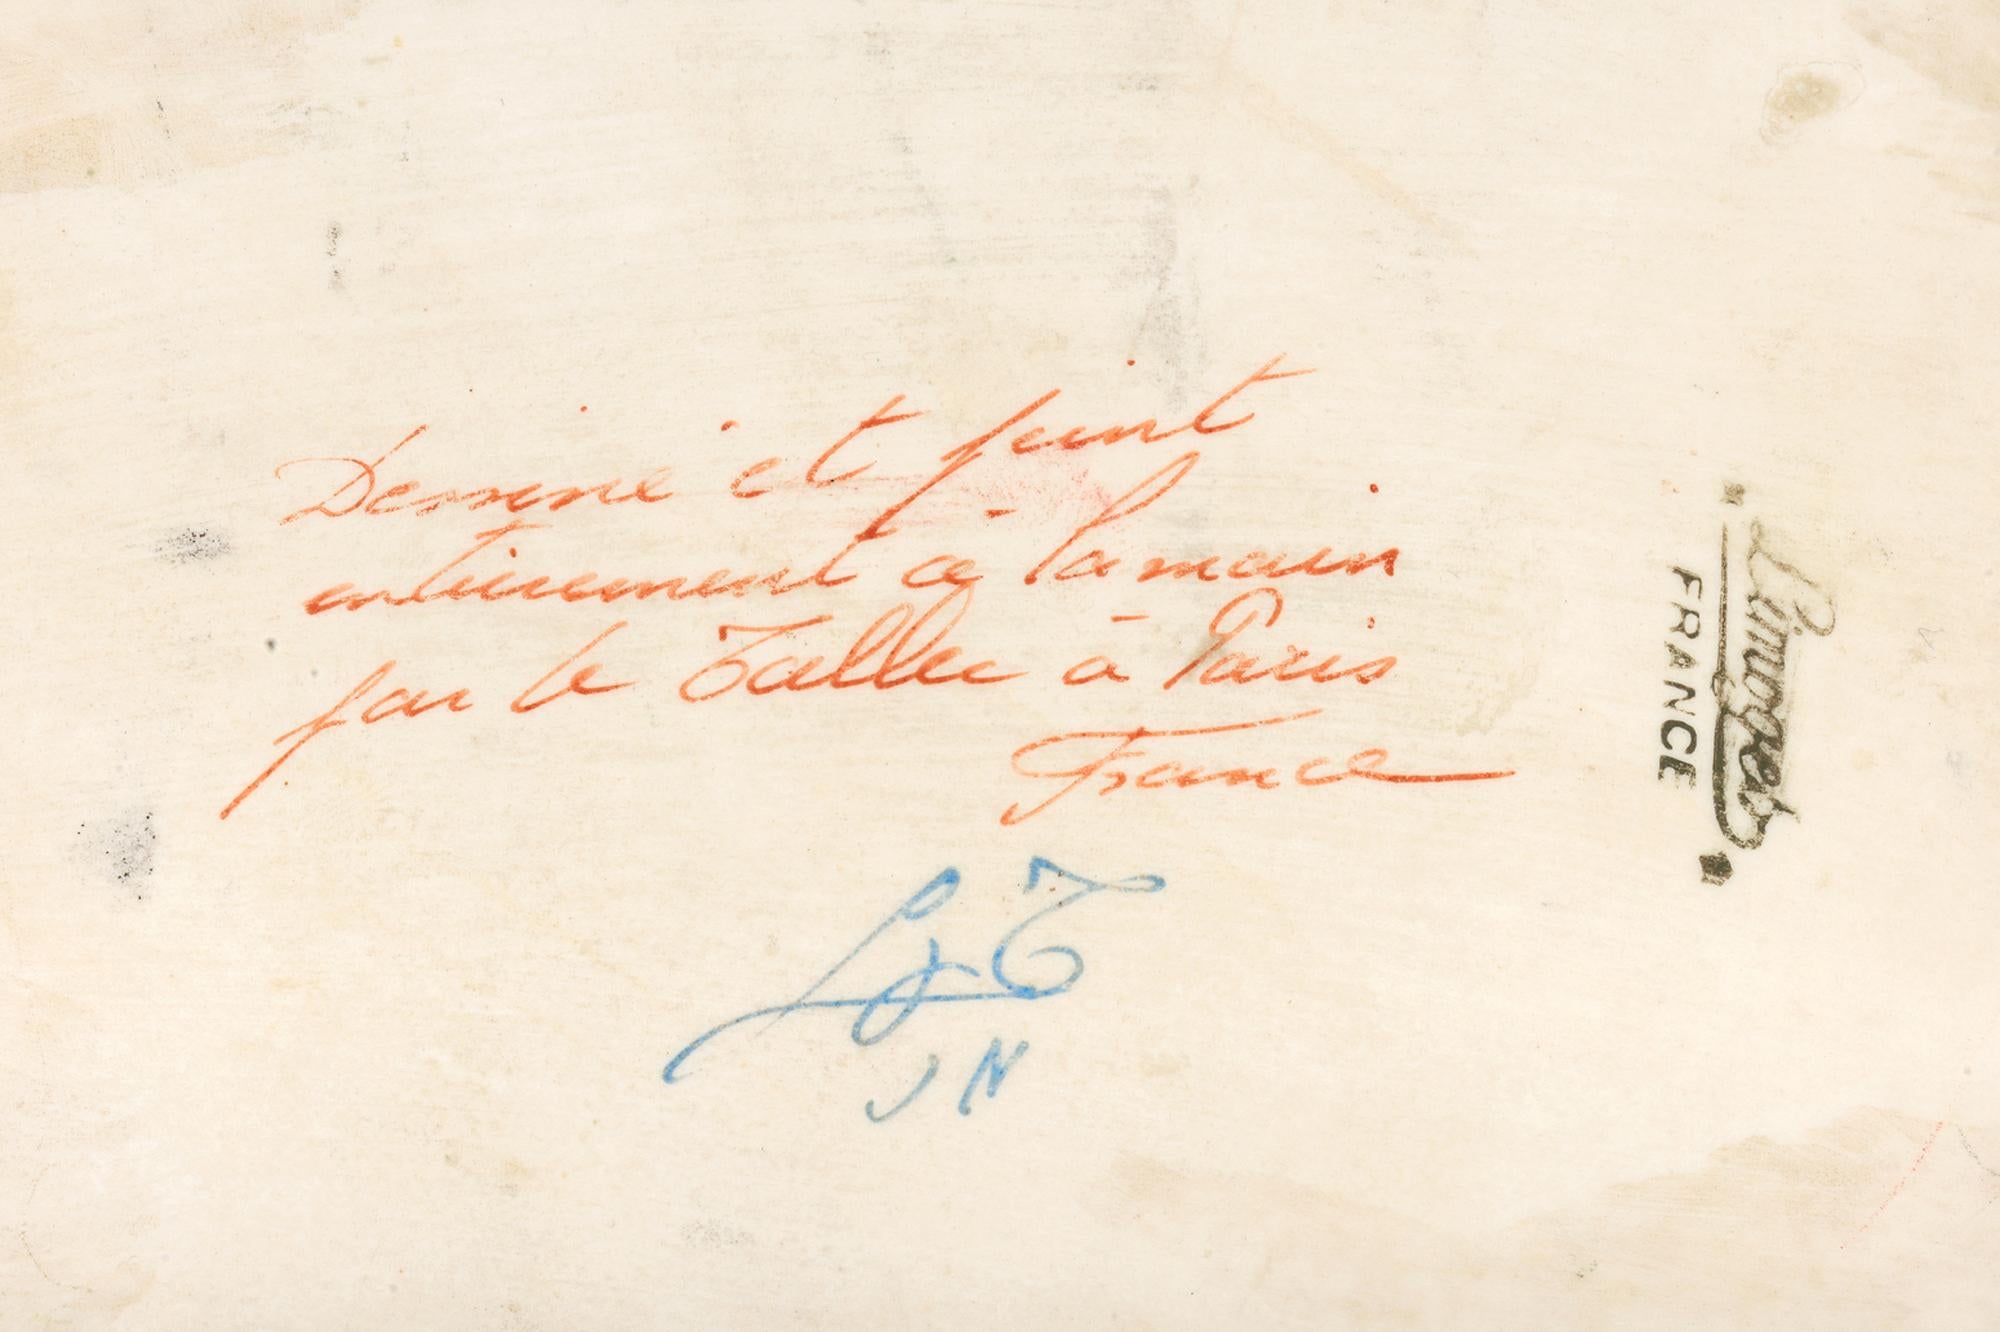 Dessiné et peint
entièrement à la main
par le Tallec à Paris
France
L T
J N
Limoges
FRANCE